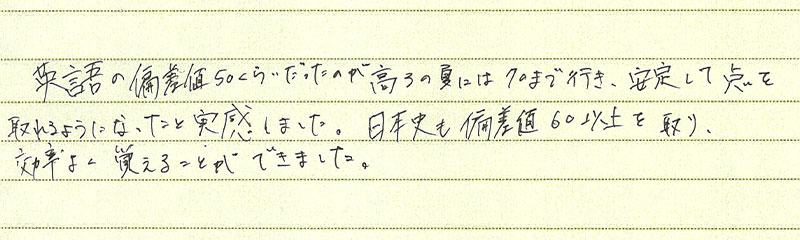 英語の偏差値50くらいだったのが高3の夏には70まで行き、安定して点を
取れるようになったと実感しました。日本史も偏差値60以上を取り、
効率よく覚えることができました。